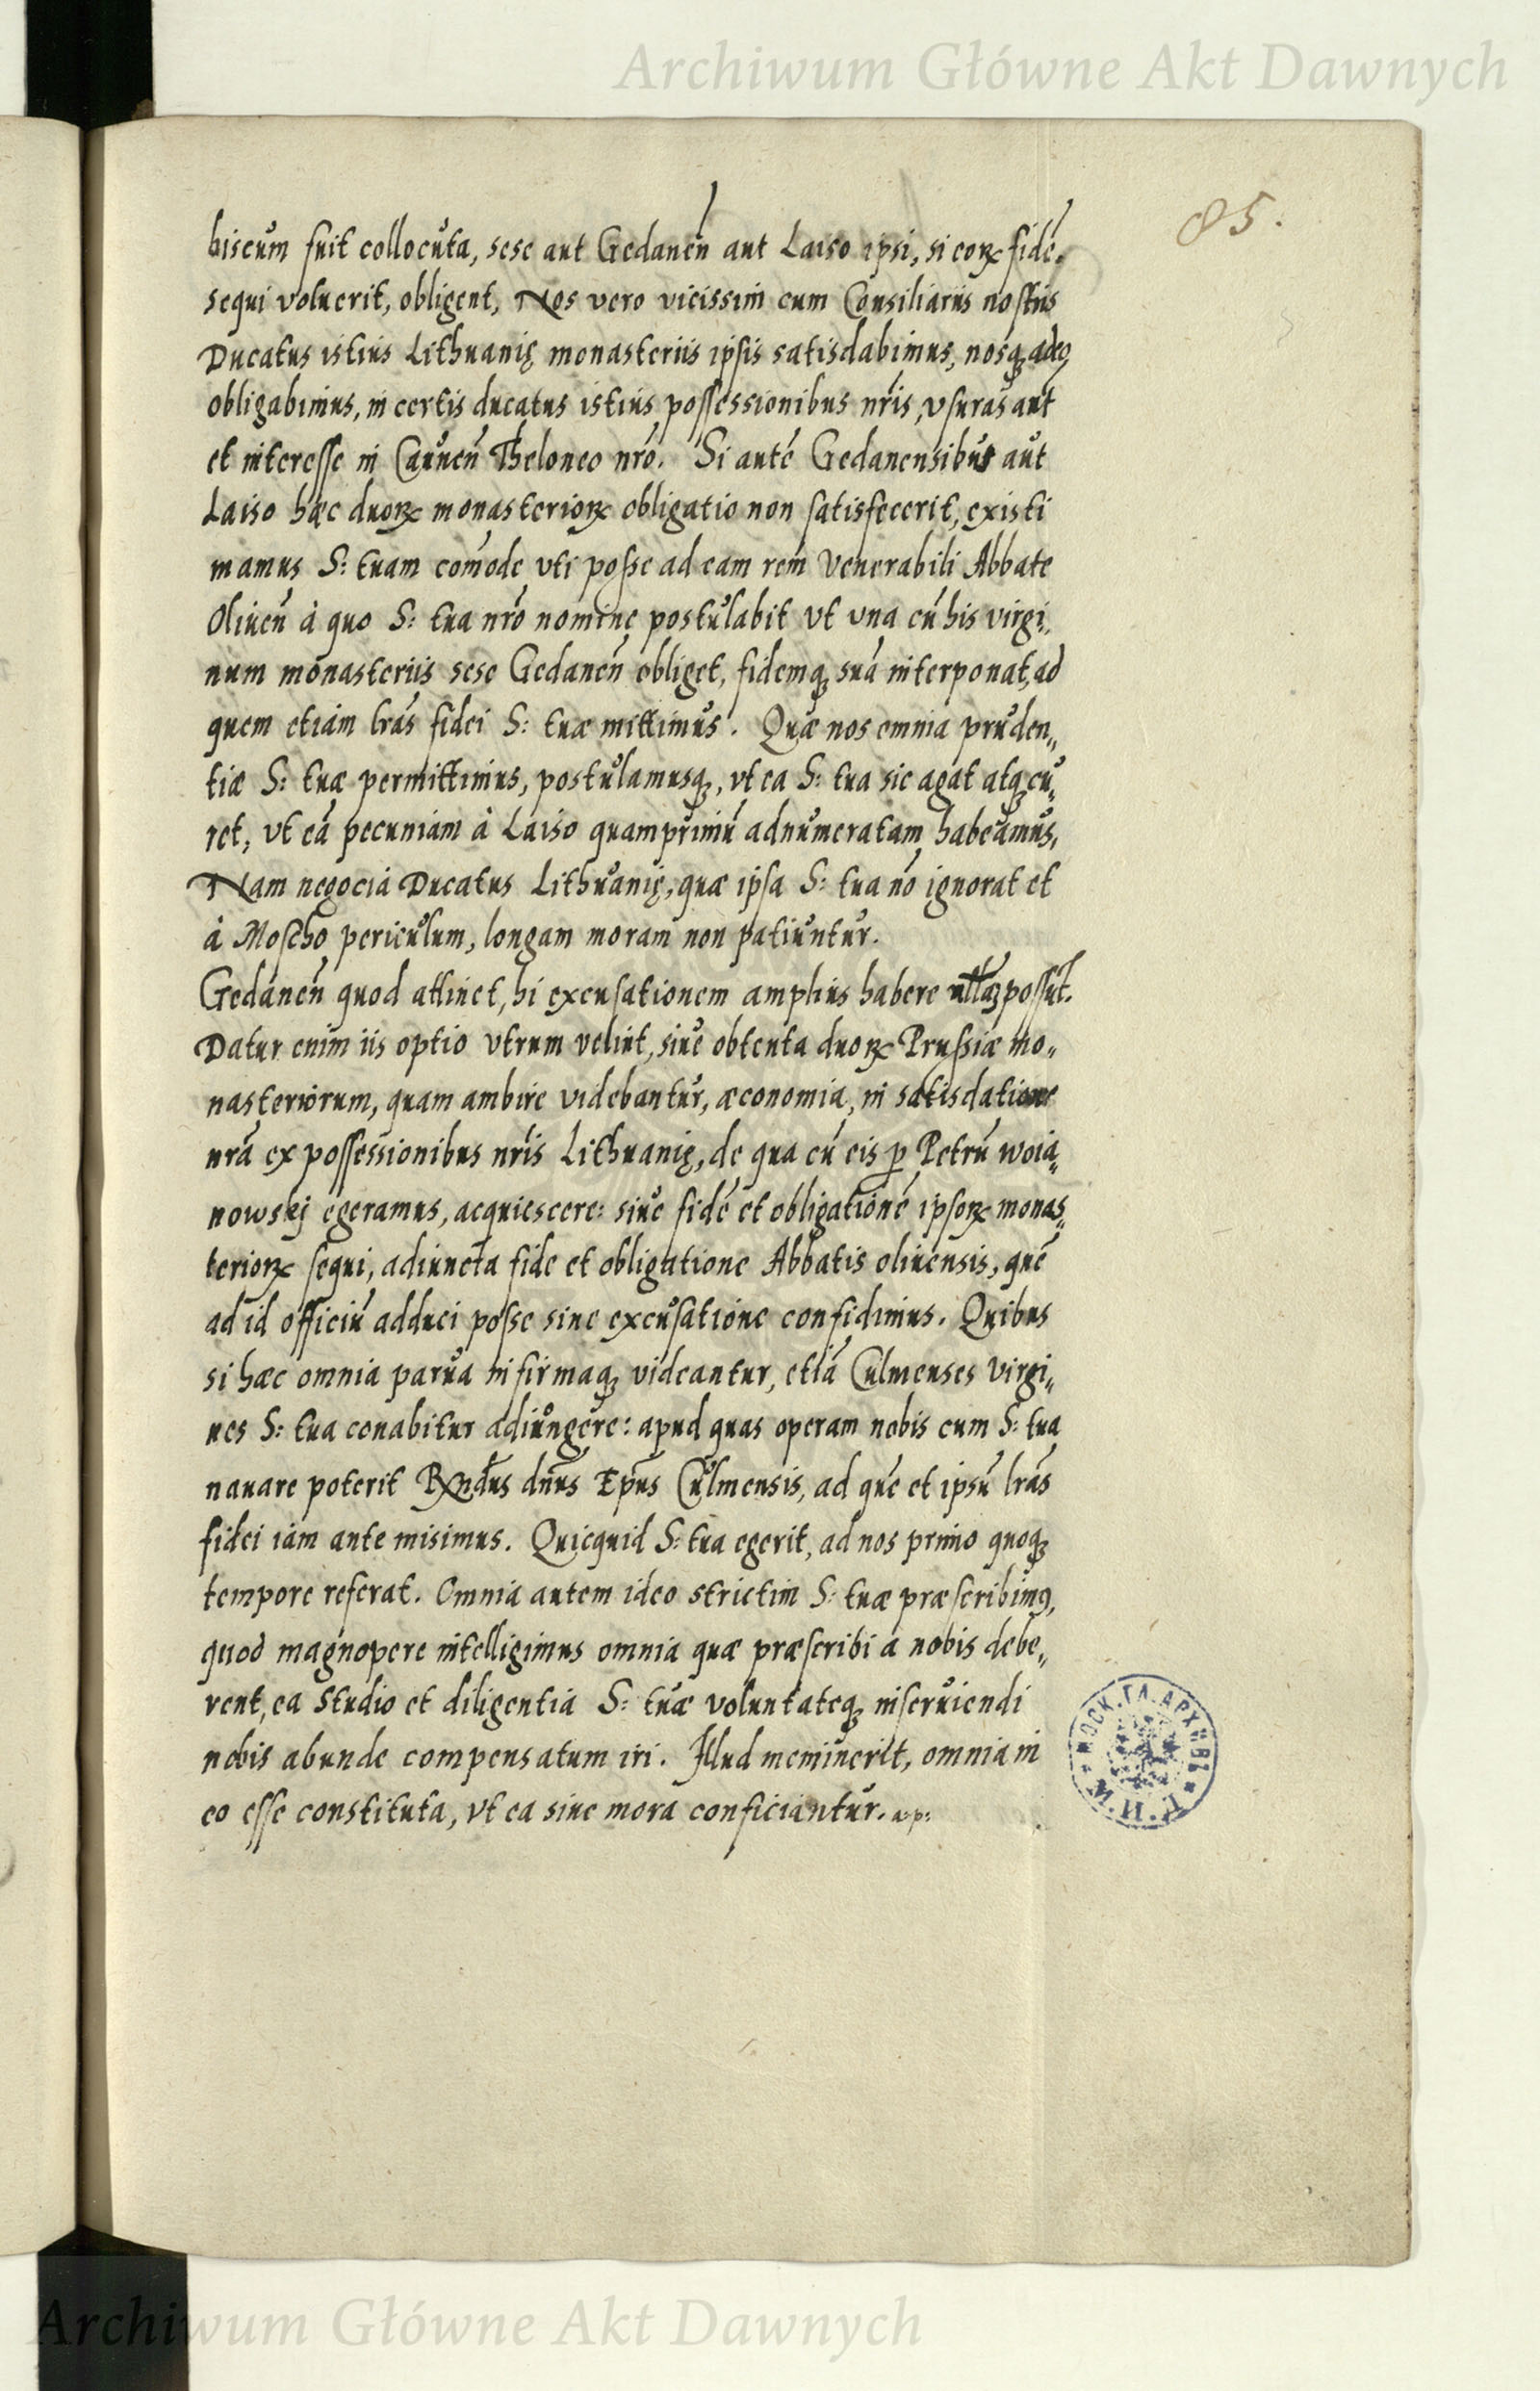 Archiwum Główne Akt Dawnych
85.
biscum fuit collocuta, sese aut Gedaneń aut Laiso ipsi, si eorꝝ fidé
sequi voluerit, obligent, Nos vero vicissim cum Consiliariis nostris
Ducatus istius Lithuanię monasteriis ipsis satisdabimus, nosqꝫ adeo
obligabimus, in certis ducatus istius possessionibus nr̃is, vsuras aut
et interesse in Cauneń Theloneo nr̃o. Si auté Gedanensibus aut
Laiso hæc duorꝝ monasteriorꝝ obligatio non satisfecerit, existi
mamus S: tuam com̃ode vti posse ad eam rem Venerabili Abbate
Oliueń à quo S: tua nr̃o nomine postulabit vt vna cũ his virgi„
num monasteriis sese Gedaneń obliget, fidemqꝫ suã interponat, ad
quem etiam lr̃as fidei S: tuæ mittimus. Quæ nos omnia pruden„
tiæ S: tuæ permittimus, postulamusqꝫ, vt ea S: tua sic agat atqꝫ cu„
ret, vt eã pecuniam à Laiso quamprimũ adnumeratam habeamus,
Nam negocia Ducatus Lithuanię, quæ ipsa S: tua nõ ignorat et
à Moscho periculum, longam moram non patiuntur.
Gedaneń quod attinet, hi excusationem amplius habere ullã possũt.
Datur enim iis optio vtrum velint, siue obtenta duorꝝ Prussiæ mo„
nasteriorum, quam ambire videbantur, æconomia, in satisdatione
nr̃a ex possessionibus nr̃is Lithuanię, de qua cũ eis ꝑ Petrũ Woia„
nowskj egeramus, acquiescere: siue fidẽ et obligationẽ ipsorꝝ monas„
teriorꝝ sequi, adiuncta fide et obligatione Abbatis oliuensis, quẽ
ad id officiũ adduci posse sine excusatione confidimus. Quibus
si hæc omnia parua infirmaqꝫ videantur, etiã Culmenses Virgi„
nes S: tua conabitur adiungere: apud quas operam nobis cum S: tua
nauare poterit Rx̃ndus dñus Ep̃us Culmensis, ad quẽ et ipsũ lr̃as
fidei iam ante misimus. Quicquid S: tua egerit, ad nos primo quoqꝫ
tempore referat. Omnia autem ideo strictim S: tuæ præscribimꝰ,
quod magnopere intelligimus omnia quæ præscribi a nobis debe„
rent, ea studio et diligentia S: tuæ voluntateqꝫ inseruiendi
nobis abunde compensatum iri. Illud meminerit, omnia in
eo esse constituta, vt ea sine mora conficiantur.
МОСК. ГЛ. АРХИВЪ
М. И. Д.
Archiwum Główne Akt Dawnych